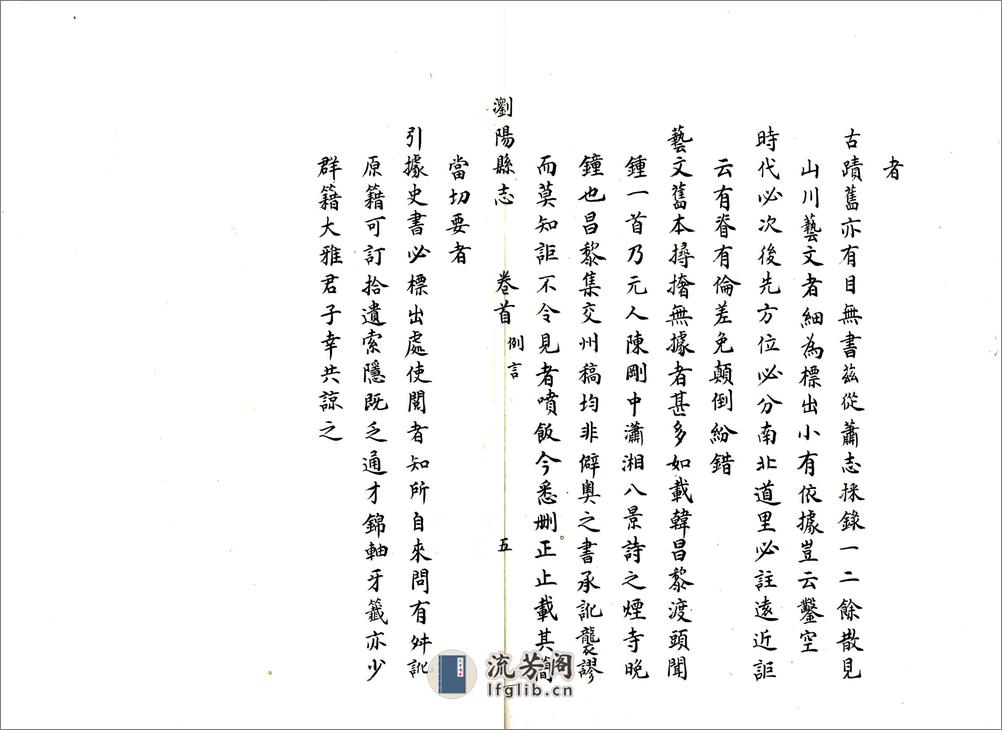 者
古蹟舊亦有目無書茲從蕭志採錄一二餘散見
山川藝文者細為標出小有依據豈云鑿空
時代必次後先方位必分南北道里必註遠近詎
云有脊有倫差免顛倒紛錯
藝文舊本撏撦無據者甚多如載韓昌黎渡頭聞
鍾一首乃元人陳剛中瀟湘八景詩之煙寺晩
鐘也昌黎集交州稿均非僻奧之書承訛襲謬
而莫知詎不令見者噴飯今悉刪正止載其簡
瀏陽縣志 卷首 例言 五
當切要者
引據史書必標出處使閱者知所自來間有舛訛
原籍可訂拾遺索隱既乏通才錦軸牙籤亦少
群籍大雅君子幸共諒之
流芳阁
lfglib.cn